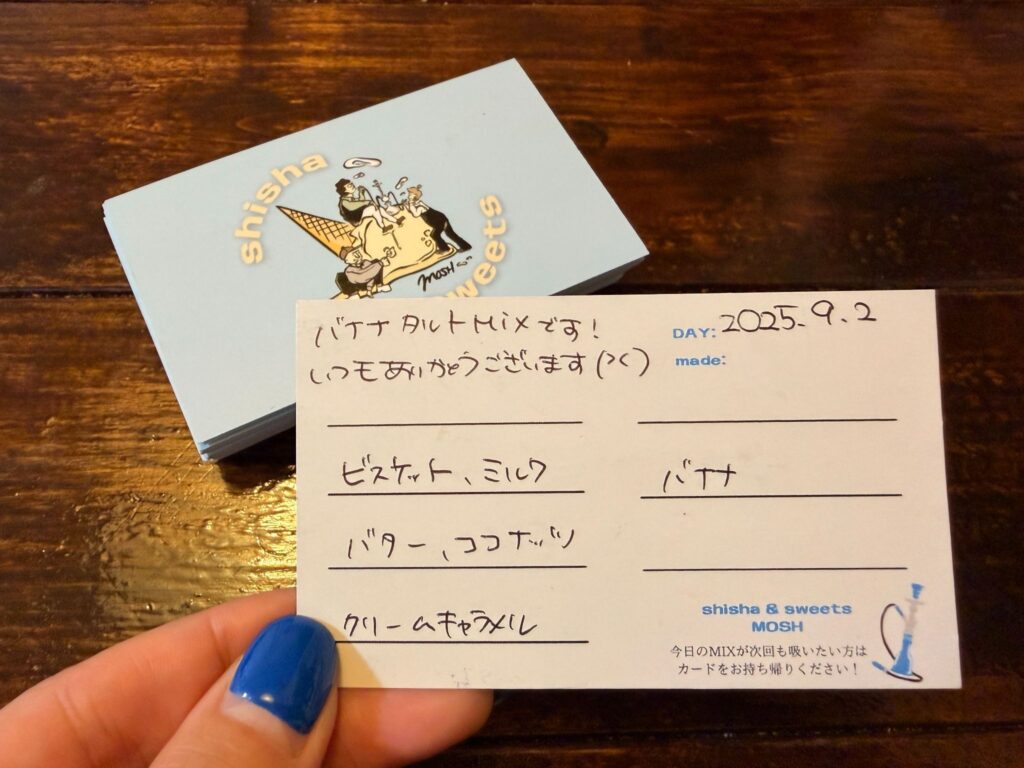 shisha
sweets
MOSH
バナナタルトMixです!
いつもありがとうございます(つく)
DAY: 2025.9.2
made:
ビスケット、ミルク
バナナ
バター、ココナッツ
クリームキャラメル
shisha & sweets
MOSH
今日のMIXが次回も吸いたい方は
カードをお持ち帰りください！